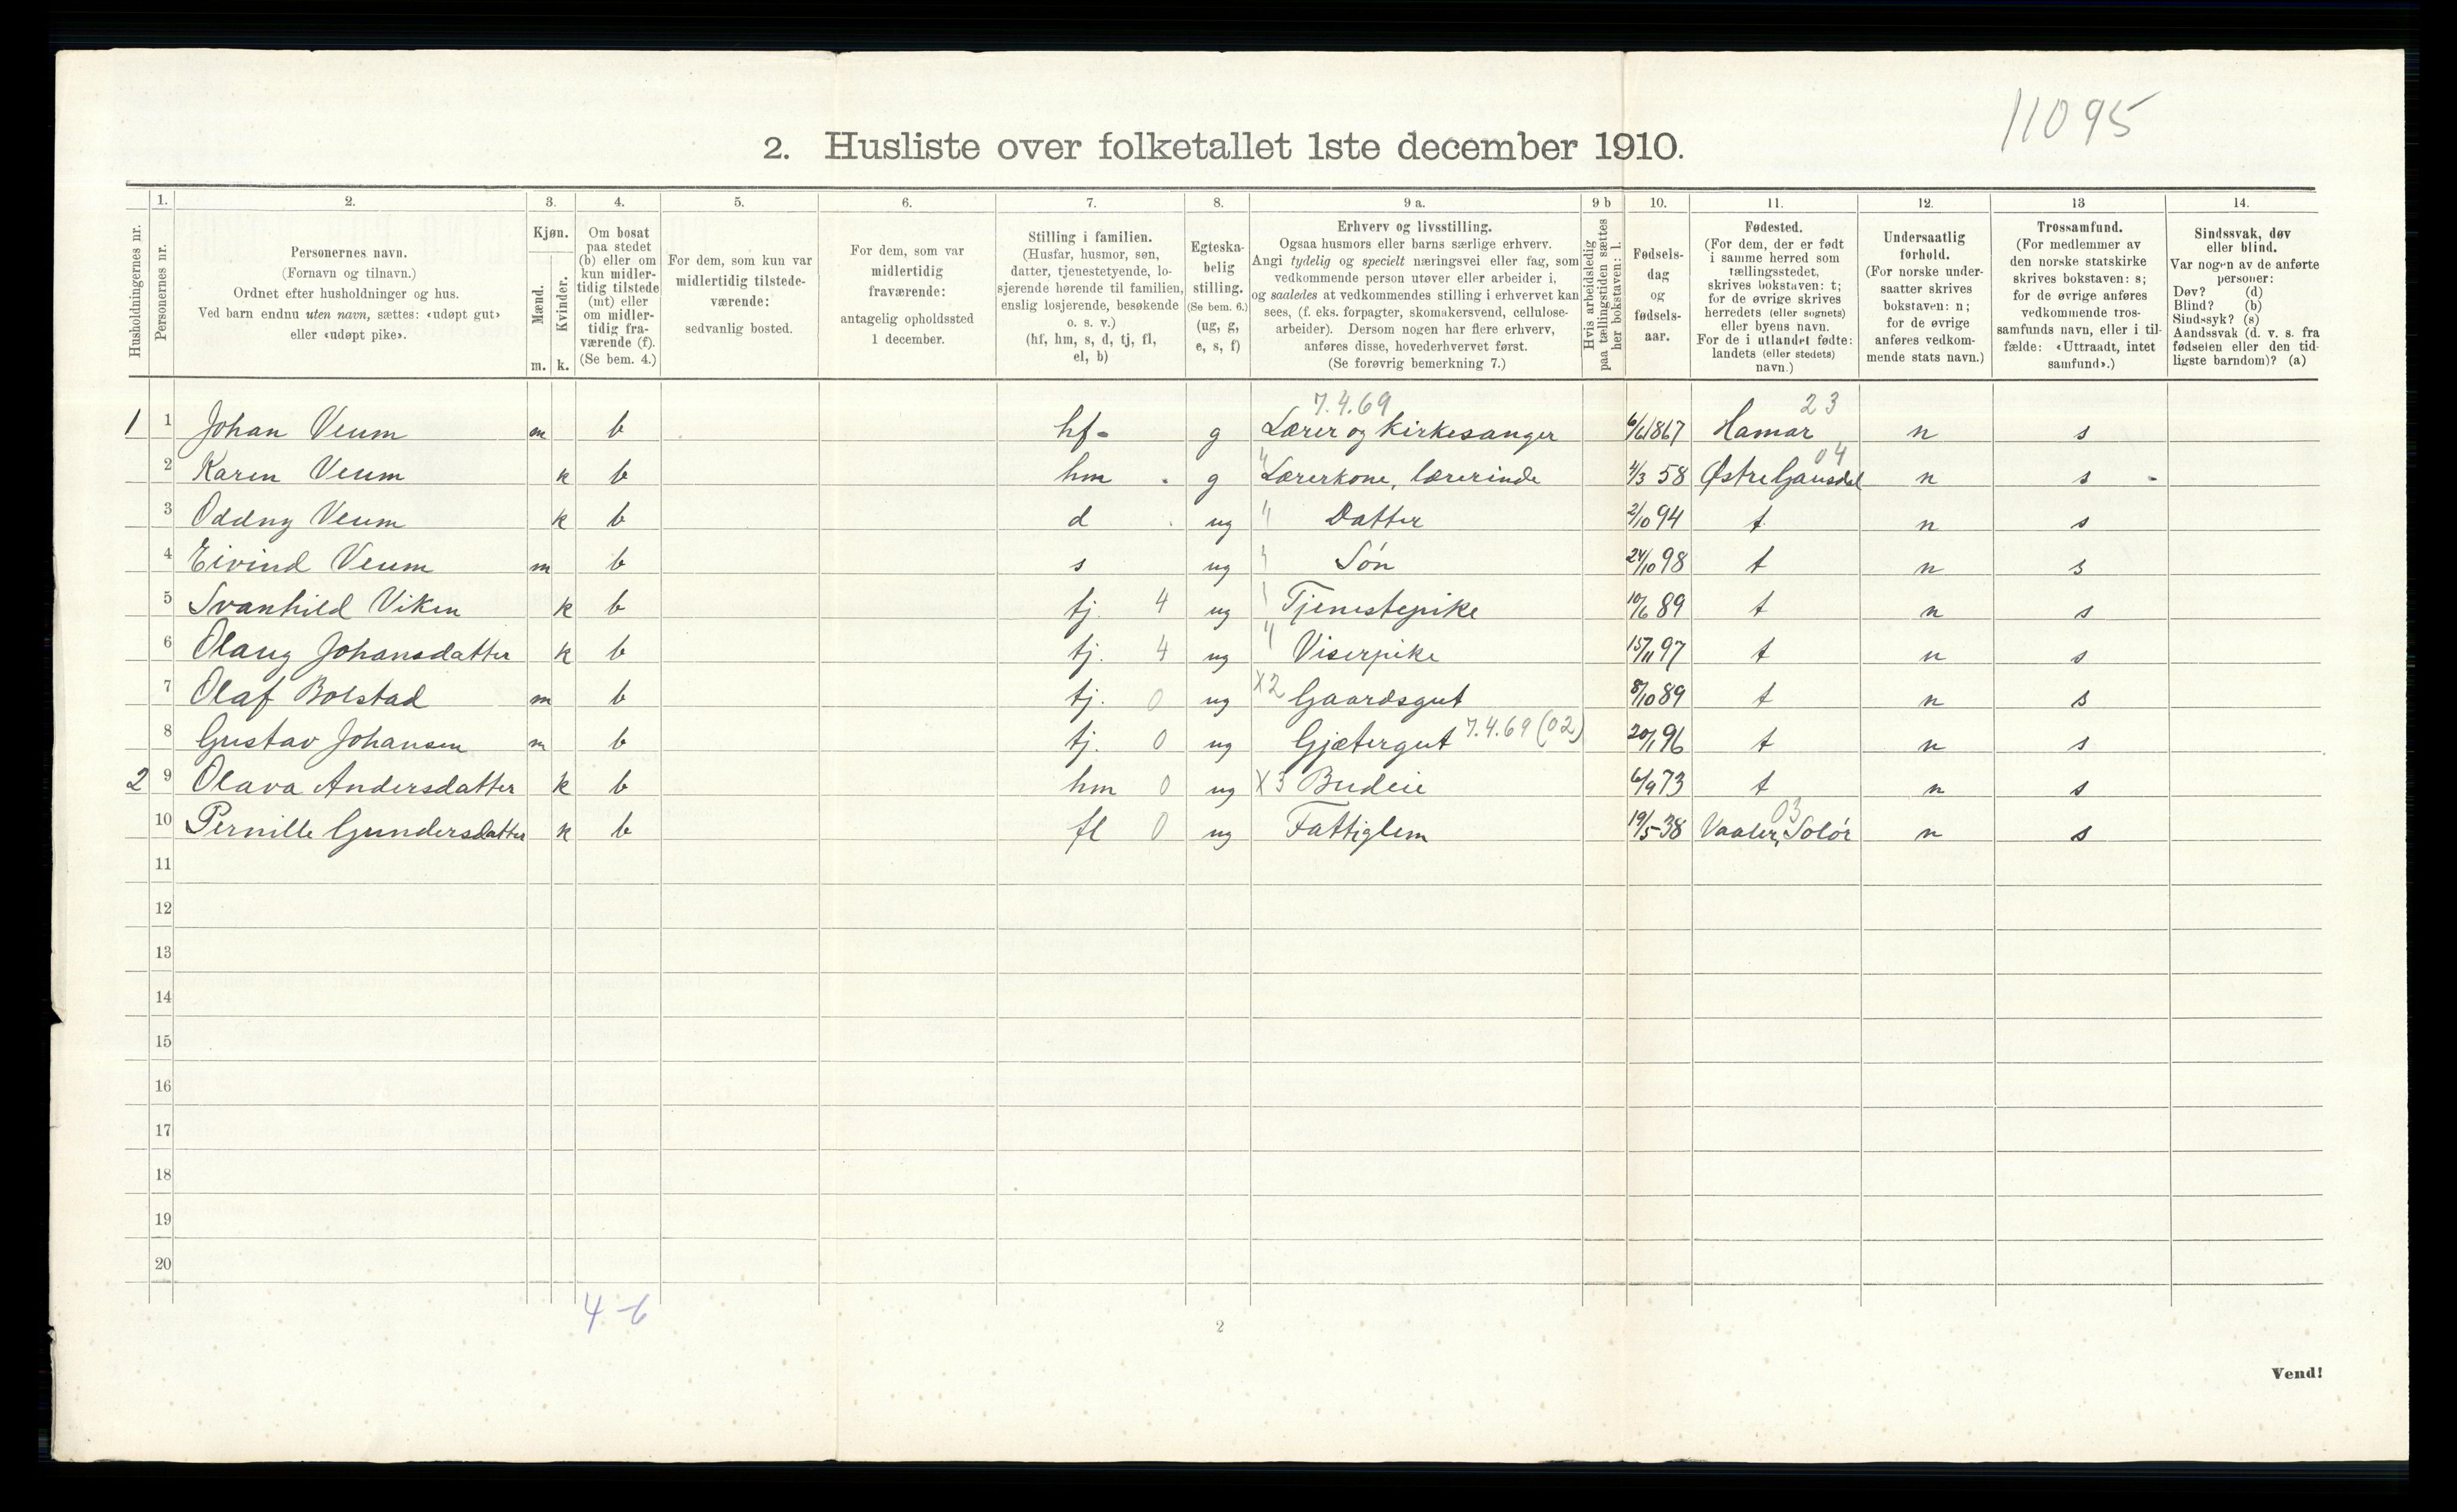 11095
2. Husliste over folketallet 1ste december 1910.
Husholdningernes nr.
1.
Personernes nr.
2.
Personernes navn.
(Fornavn og tilnavn.)
Ordnet efter husholdninger og hus.
Ved barn endnu uten navn, sættes: «udøpt gut»
eller «udøpt pike».
3.
Kjøn.
Mænd.
Kvinder.
m. k.
4.
Om bosat
paa stedet
(b) eller om
kun midler-
tidig tilstede
(mt) eller
om midler-
tidig fra-
værende (f).
(Se bem. 4.)
5.
For dem, som kun var
midlertidig tilstede-
værende:
sedvanlig bosted.
6.
For dem, som var
midlertidig
fraværende:
antagelig opholdssted
1 december.
7.
Stilling i familien.
(Husfar, husmor, søn,
datter, tjenestetyende, lo-
sjerende hørende til familien,
enslig losjerende, besøkende
o. s. v.)
(hf, hm, s, d, tj, fl,
el, b)
8.
Egteska-
belig
stilling.
(Se bem. 6.)
(ug, g,
e, s, f)
9 a.
Erhverv og livsstilling.
Ogsaa husmors eller barns særlige erhverv.
Angi tydelig og specielt næringsvei eller fag, som
vedkommende person utøver eller arbeider i,
og saaledes at vedkommendes stilling i erhvervet kan
sees, (f. eks. forpagter, skomakersvend, cellulose-
arbeider). Dersom nogen har flere erhverv,
anføres disse, hovederhvervet først.
(Se forøvrig bemerkning 7.)
9 b
Hvis arbeidsledig
paa tællingstiden sættes
her bokstaven: l.
10.
Fødsels-
dag
og
fødsels-
aar.
11.
Fødested.
(For dem, der er født
i samme herred som
tællingsstedet,
skrives bokstaven: t;
for de øvrige skrives
herredets (eller sognets)
eller byens navn.
For de i utlandet fødte:
landets (eller stedets)
navn.)
12.
Undersaatlig
forhold.
(For norske under-
saatter skrives
bokstaven: n;
for de øvrige
anføres vedkom-
mende stats navn.)
13
Trossamfund.
(For medlemmer av
den norske statskirke
skrives bokstaven: s;
for de øvrige anføres
vedkommende tros-
samfunds navn, eller i til-
fælde: «Uttraadt, intet
samfund».)
14.
Sindssvak, døv
eller blind.
Var nogen av de anførte
personer:
Døv? (d)
Blind? (b)
Sindssyk? (s)
Aandssvak (d. v. s. fra
fødselen eller den tid-
ligste barndom)? (a)
7.4.69 23
1 1 Johan Veum m b hf- g Lærer og kirkesanger 6/6 1867 Hamar n s
04
2 Karen Veum k b hm g " Lærerkone, lærerinde 4/3 58 Østre Gausdal n s -
3 Oddny Veum k b d ug " Datter 2/10 94 t n s
4 Eivind Veum m b s ug " Søn 24/10 98 t n s
5 Svanhild Viken k b tj. 4 ug " Tjenestepike 10/6 89 t n s
6 Olaug Johansdatter k b tj. 4 ug " Viserpike 15/11 97 t n s
7 Olaf Bolstad m b tj. 0 ug X2 Gaardsgut 8/10 89 t n s
8 Gustav Johansen m b tj. 0 ug Gjætergut 7.4.69 (02) 20/1 96 t n s
2 9 Olava Andersdatter k b hm 0 ug X3 Budeie 6/9 73 t n s
03
10 Pernille Gundersdatter k b fl 0 ug Fattiglem 19/5 38 Vaaler, Solør n s
11
12
13
14
15
16
17
18
19
20
4-6
2
Vend!